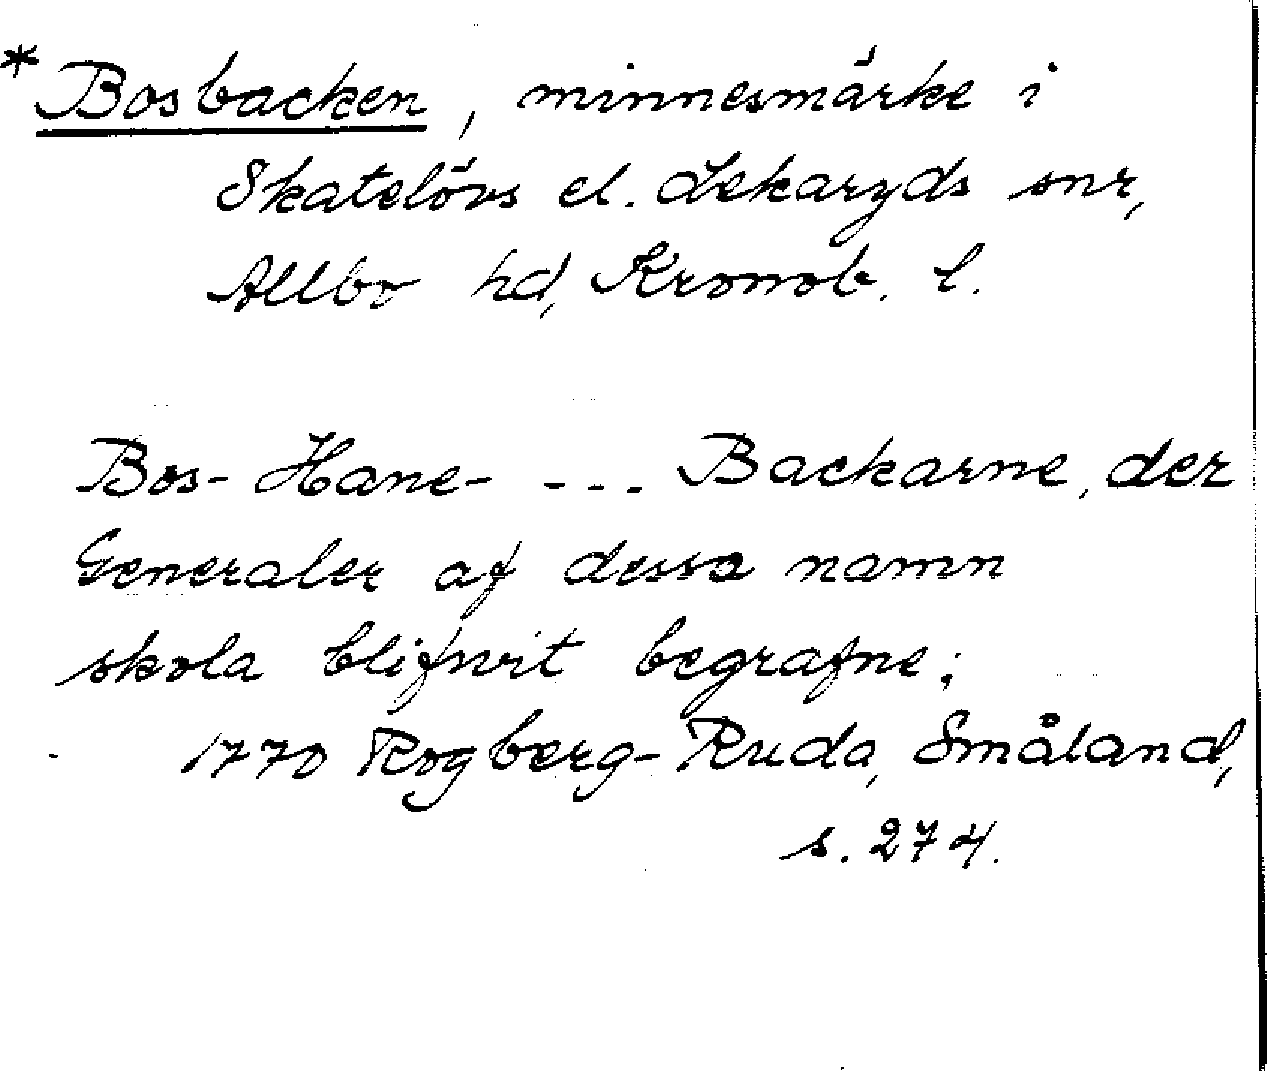 * Bosbacken, minnesmärke i
Skatelövs el. Lekaryds snr,
Allbo hd, Kronob. l.
Bos- Hane- - - - Backarne, der
Generaler af dessa namn
skola blifwit begrafne;
1770 Rogberg-Ruda, Småland,
s. 274.